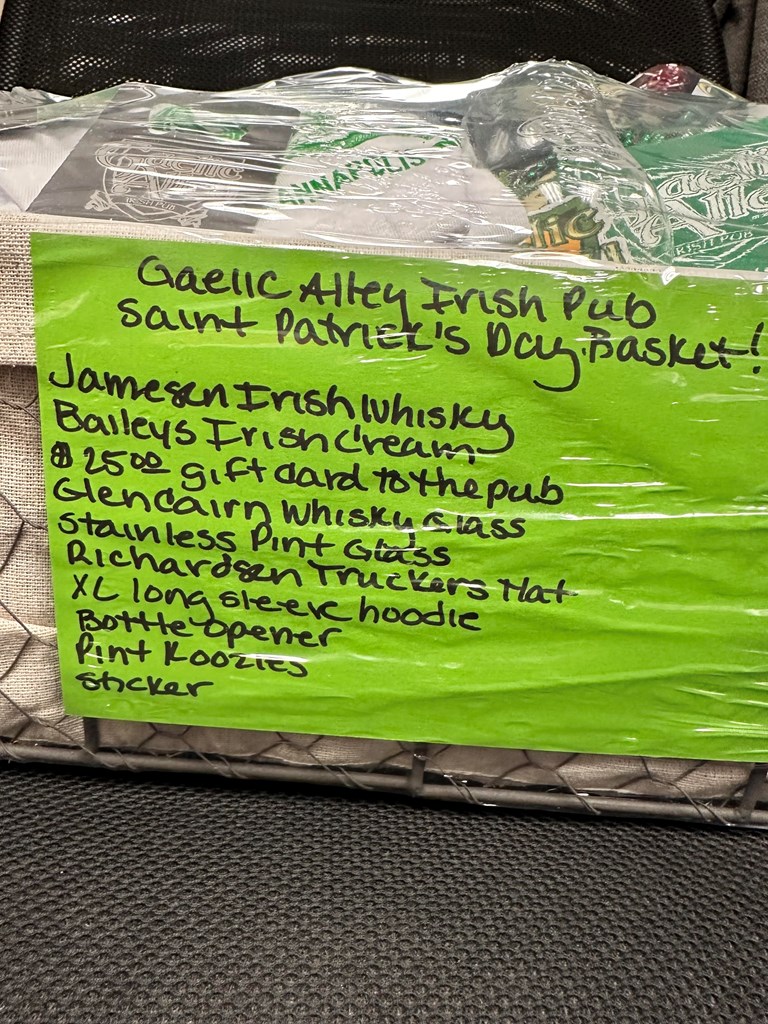 Gaelic
Alley
IRISH PUB
ANNAPOLIS
Gaelic Alley Irish Pub
Saint Patrick's Day Basket!
Jameson Irish Whisky
Baileys Irish Cream
$25.00 gift card to the pub
Glencairn Whisky Glass
Stainless Pint Glass
Richardson Truckers Hat
XL long sleeve hoodie
Bottle opener
Pint Koozies
Sticker